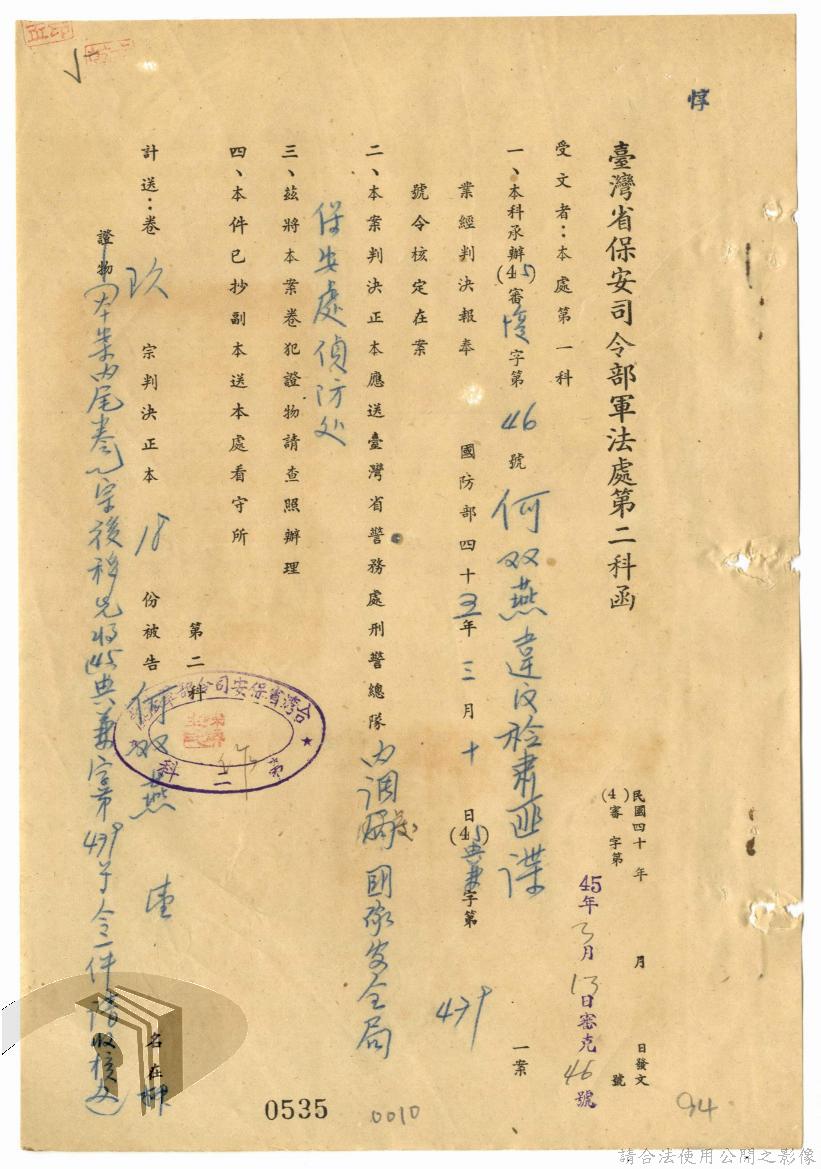 惇
臺灣省保安司令部軍法處第二科函
民國四十年月日發文
(4)審字第號
45年3月13日審克46號
受文者：本處第一科
一、本科承辦(45)審復字第46號何双燕違反檢肅匪諜一案
業經判決報奉國防部四十五年三月十日(45)典兼字第439
號令核定在案
二、本案判決正本應送臺灣省警務處刑警總隊內調局國家安全局
保安處偵防处
三、茲將本案卷犯證物請查照辦理
四、本件已抄副本送本處看守所
第二科
台灣省保安司令部軍法處
第二科
計送：卷玖宗判決正本18份被告何双燕壹名在押
證物(本案內尾卷宗後移先將(45)典兼字第439号令一件請收核文)
0535
0010
94
請合法使用公開之影像